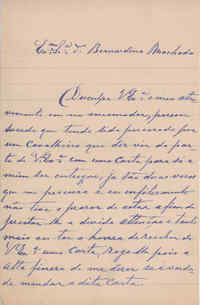 Exmo Sr. Dr. Bernardino Machado
Desculpe V. Exa o meu atre
vimento em o incomodar, porem
sucede que tendo sido procurado por
um Cavalheiro que diz vir da par
te de V. Exa com uma Carta para só a
mim ser entregue, ja são duas vezes
que me procura e eu infelizmente
não tive o prazer de estar, a fim de
prestar-lhe a devida attenção e tanto
mais em ter a honra de receber de
V. Exa uma Carta, rogo-lhe pois a
alta fineza de me dizer se é verda
de mandar a dita Carta.